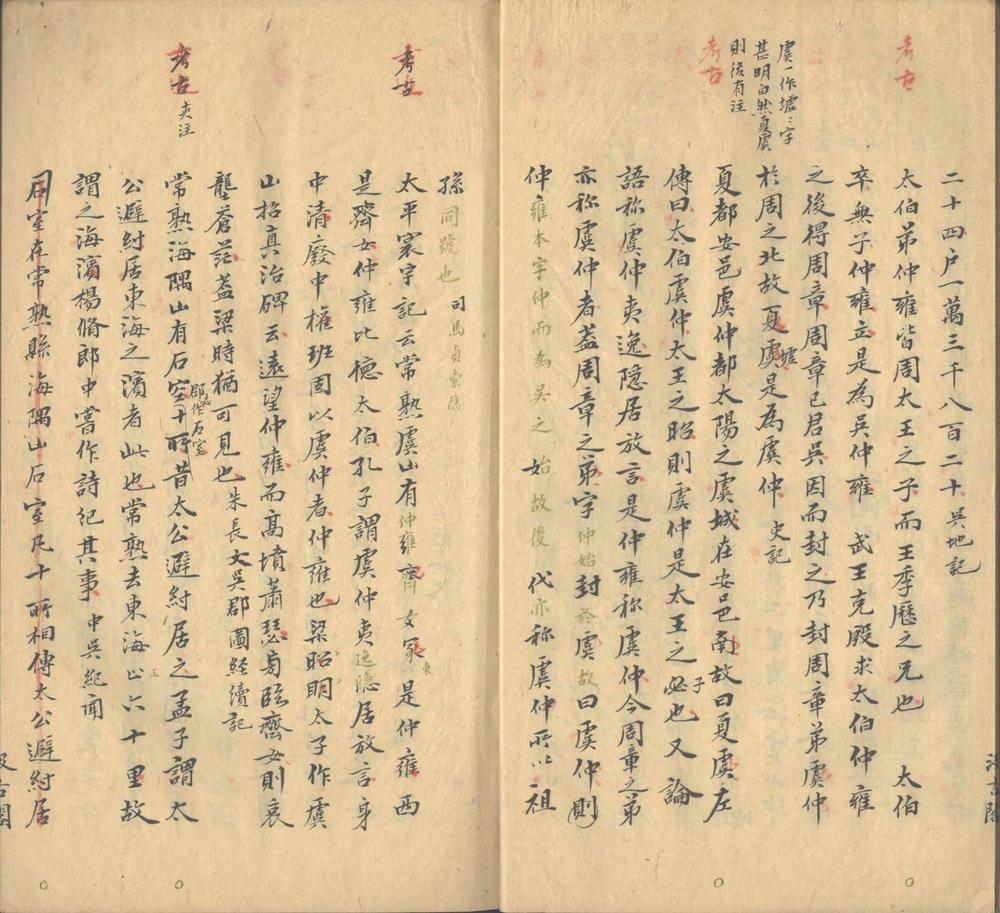 二十四戶一萬三千八百二十吳地記
考古
太伯弟仲雍皆周太王之子而王季歷之兄也 太伯
卒無子仲雍立是為吳仲雍 武王克殷求太伯仲雍
之後得周章周章已君吳因而封之乃封周章弟虞仲
虞一作墟二字
甚明白然夏虞
則後有注
於周之北故夏虞是為虞仲 史記
墟
考古
夏都安邑虞仲都太陽之虞城在安邑南故曰夏虞左
傳曰太伯虞仲太王之昭則虞仲是太王之必也又論
子
語称虞仲夷逸隐居放言是仲雍称虞仲今周章之弟
亦称虞仲者蓋周章之弟字仲始封於虞故曰虞仲則
仲雍本字仲而為吳之始故後代亦称虞仲所以祖
孫同號也 司馬貞索隐
考古
太平寰宇記云常熟虞山有仲雍齊女冢東是仲雍西
是齊女仲雍比德太伯孔子謂虞仲夷逸隐居放言身
中清廢中權班固以虞仲者仲雍也梁昭明太子作虞
山招真治碑云遠望仲雍而高墳蕭瑟旁臨齊女則哀
壟蒼茫蓋梁時猶可見也朱長文吳郡圖經續記
考古 夾注
常熟海隅山有石室十所昔太公避紂居之孟子謂太
公避紂居東海之濱者此也常熟去東海止六十里故
正
謂之海濱楊脩郎中嘗作詩紀其事 中吳紀聞
石室在常熟縣海隅山石室凡十所相傳太公避紂居